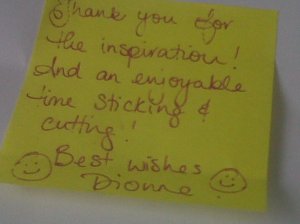 Thank you for
the inspiration!
And an enjoyable
time sticking &
cutting!
Best wishes
Dionne